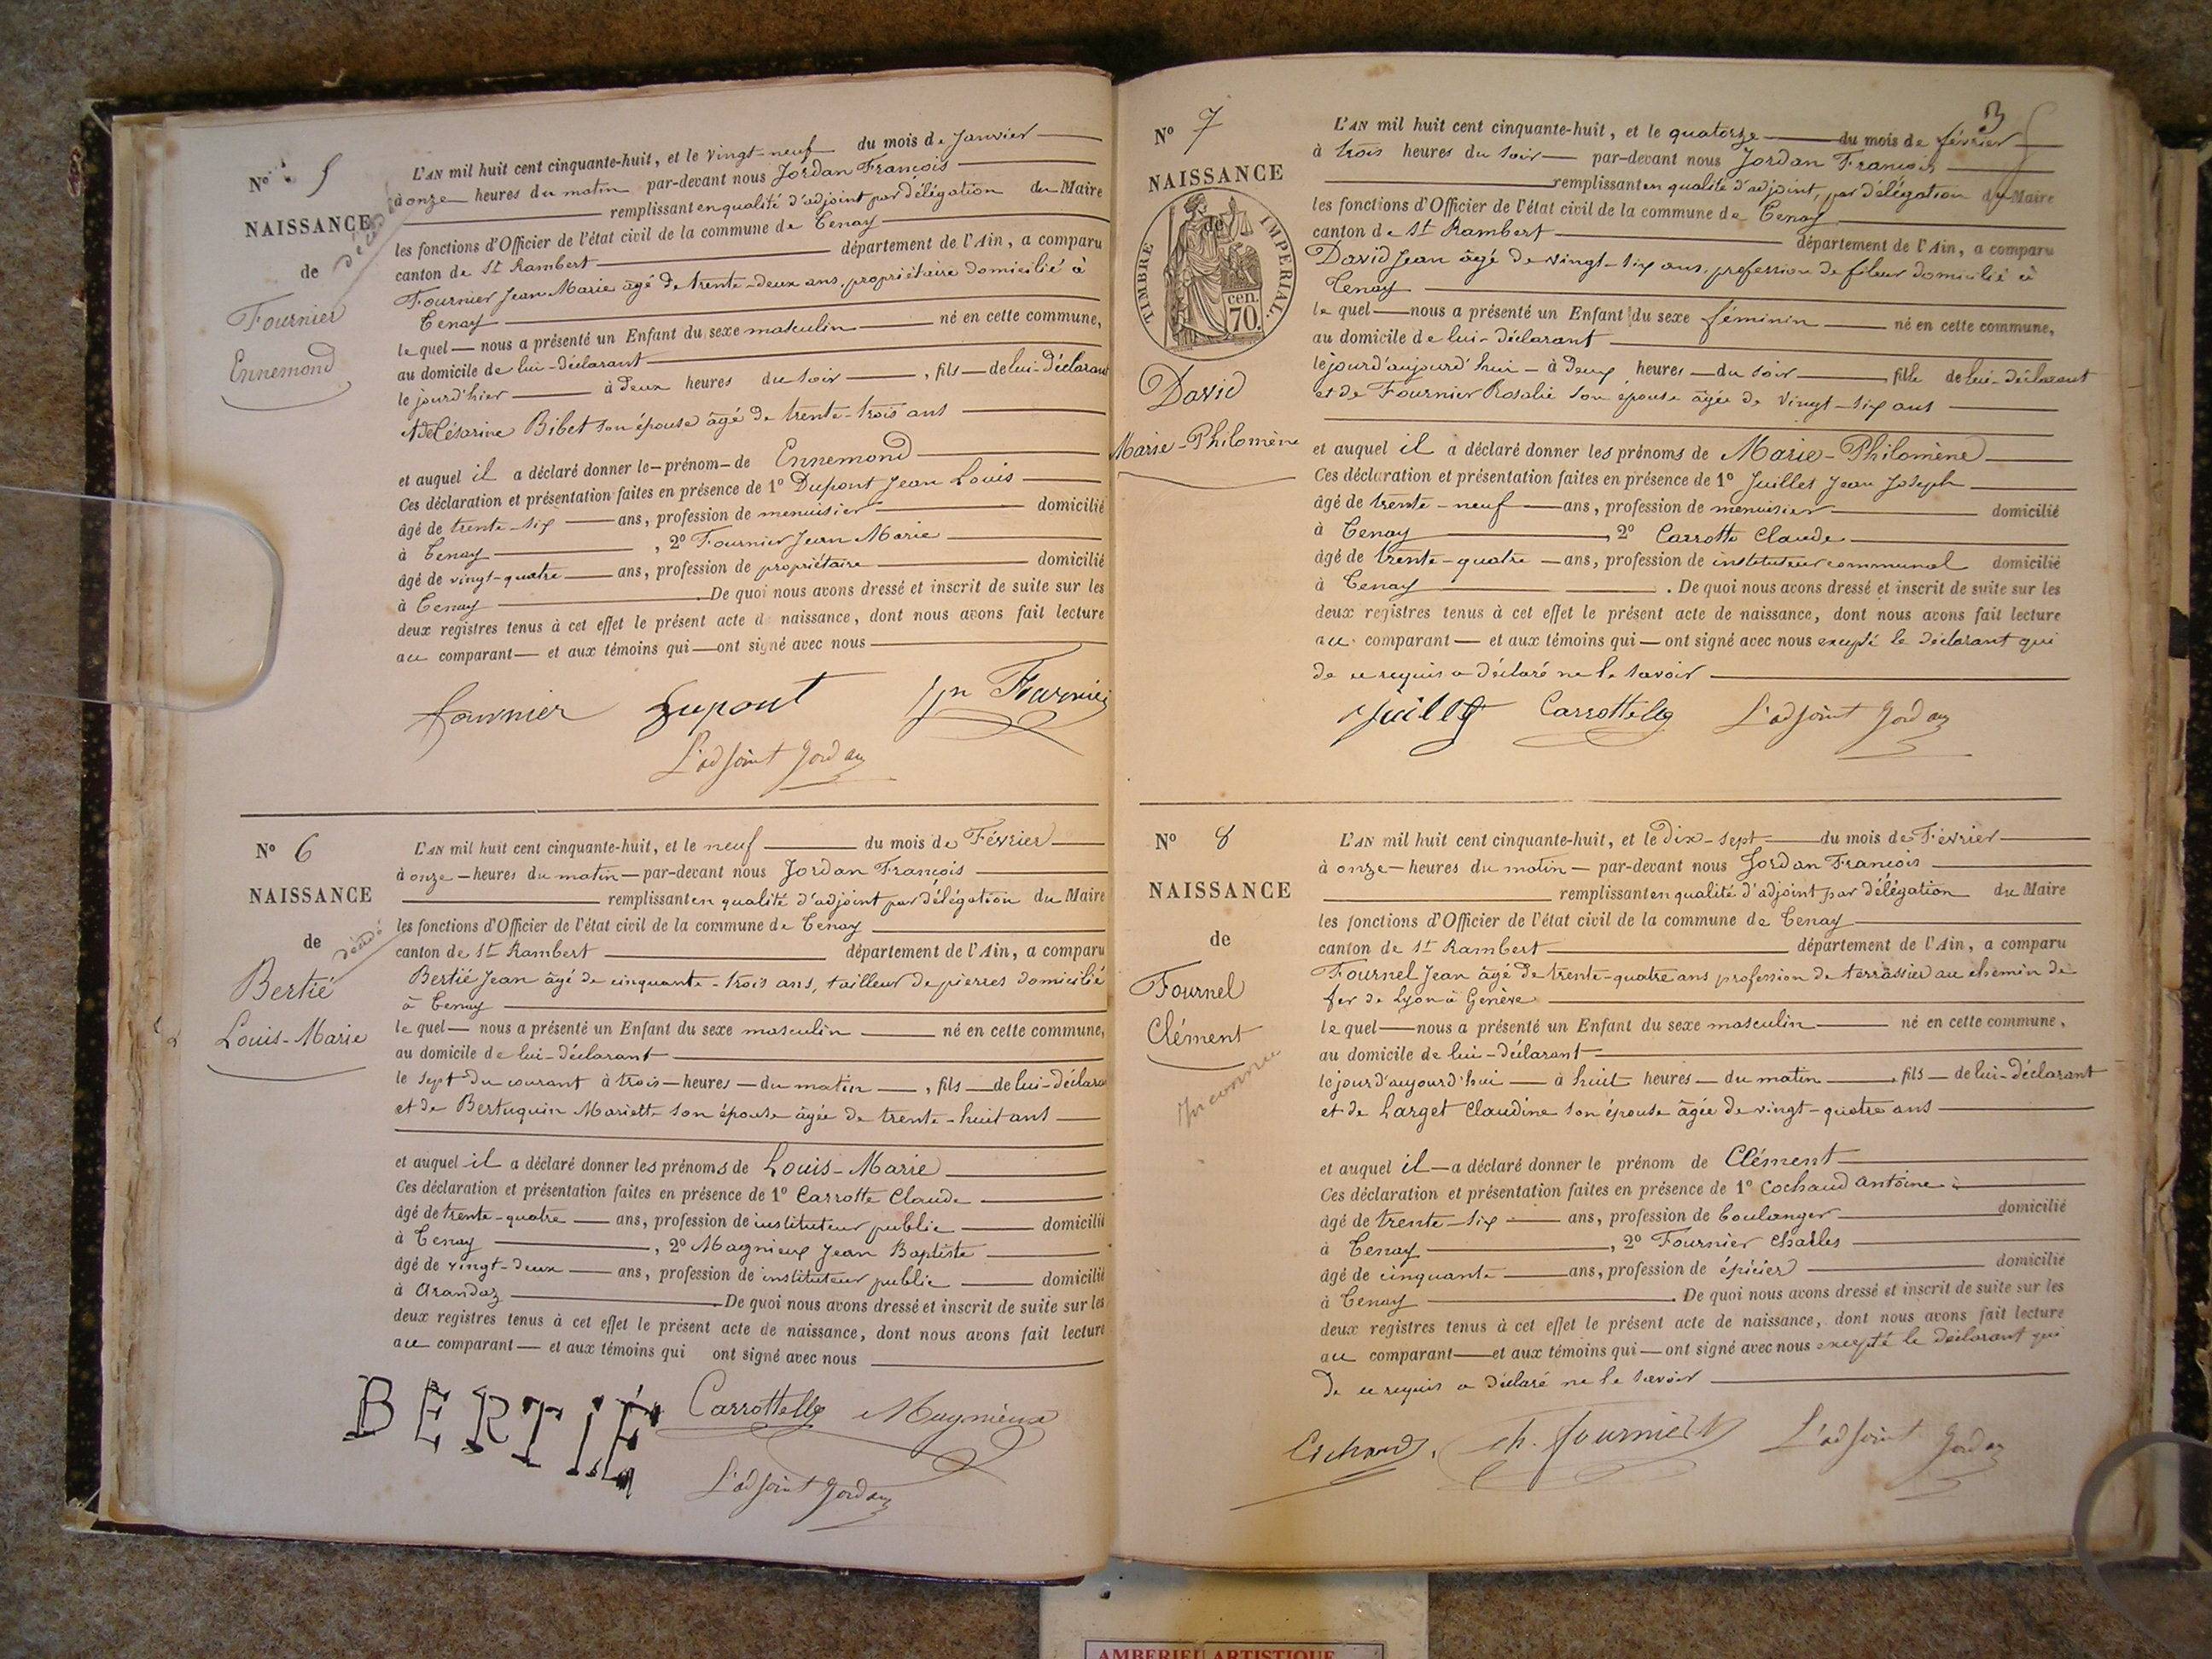 N° 5
NAISSANCE
de
décédé
Fournier
Ennemond
L'AN mil huit cent cinquante-huit, et le vingt-neuf du mois de Janvier
à onze heures du matin par-devant nous Jordan François
remplissant en qualité d'adjoint par délégation du Maire
les fonctions d'Officier de l'état civil de la commune de Tenay
canton de St Rambert département de l'Ain, a comparu
Fournier Jean Marie âgé de trente-deux ans, propriétaire domicilié à
Tenay
le quel nous a présenté un Enfant du sexe masculin né en cette commune,
au domicile de lui-déclarant
le jour d'hier à deux heures du soir, fils de lui-déclarant
et de Césarine Bibet son épouse âgé de trente-trois ans
et auquel il a déclaré donner le prénom de Ennemond
Ces déclaration et présentation faites en présence de 1° Dupont Jean Louis
âgé de trente-six ans, profession de menuisier domicilié
à Tenay, 2° Fournier Jean Marie
âgé de vingt-quatre ans, profession de propriétaire domicilié
à Tenay. De quoi nous avons dressé et inscrit de suite sur les
deux registres tenus à cet effet le présent acte de naissance, dont nous avons fait lecture
au comparant et aux témoins qui ont signé avec nous
fournier Dupont Jn Fournier
L'adjoint Jordan
N° 6
NAISSANCE
de
décédé
Bertié
Louis-Marie
L'AN mil huit cent cinquante-huit, et le neuf du mois de Février
à onze heures du matin par-devant nous Jordan François
remplissant en qualité d'adjoint par délégation du Maire
les fonctions d'Officier de l'état civil de la commune de Tenay
canton de St Rambert département de l'Ain, a comparu
Bertié Jean âgé de cinquante-trois ans, tailleur de pierres domicilié
à Tenay
le quel nous a présenté un Enfant du sexe masculin né en cette commune,
au domicile de lui-déclarant
le sept du courant à trois heures du matin, fils de lui-déclara
et de Bertuquin Mariette son épouse âgée de trente-huit ans
et auquel il a déclaré donner les prénoms de Louis-Marie
Ces déclaration et présentation faites en présence de 1° Carrotte Claude
âgé de trente-quatre ans, profession de instituteur public domicilié
à Tenay, 2° Magnieux Jean Baptiste
âgé de vingt-deux ans, profession de instituteur public domicilié
à Arandaz De quoi nous avons dressé et inscrit de suite sur les
deux registres tenus à cet effet le présent acte de naissance, dont nous avons fait lecture
au comparant et aux témoins qui ont signé avec nous
BERTIÉ Carrotte Magnieux
L'adjoint Jordan
3
N° 7
NAISSANCE
de
TIMBRE IMPERIAL.
cen.
70.
David
Marie-Philomène
L'AN mil huit cent cinquante-huit, et le quatorze du mois de février
à trois heures du soir par-devant nous Jordan François
remplissant en qualité d'adjoint, par délégation du Maire
les fonctions d'Officier de l'état civil de la commune de Tenay
canton de St Rambert département de l'Ain, a comparu
David Jean âgé de vingt-six ans, profession de fileur domicilié à
Tenay
le quel nous a présenté un Enfant du sexe féminin né en cette commune,
au domicile de lui-déclarant
le jour d'aujourd'hui à deux heures du soir fille de lui-déclarant
et de Fournier Rosalie son épouse âgée de vingt-six ans
et auquel il a déclaré donner les prénoms de Marie-Philomène
Ces déclaration et présentation faites en présence de 1° Juillet Jean Joseph
âgé de trente-neuf ans, profession de menuisier domicilié
à Tenay, 2° Carrotte Claude
âgé de trente-quatre ans, profession de instituteur communal domicilié
à Tenay. De quoi nous avons dressé et inscrit de suite sur les
deux registres tenus à cet effet le présent acte de naissance, dont nous avons fait lecture
au comparant et aux témoins qui ont signé avec nous excepté le déclarant qui
de ce requis a déclaré ne le savoir
Juillet Carrotte L'adjoint Jordan
N° 8
NAISSANCE
de
Fournel
Clément
Inconnu
L'AN mil huit cent cinquante-huit, et le Dix-sept du mois de Février
à onze heures du matin par-devant nous Jordan François
remplissant en qualité d'adjoint par délégation du Maire
les fonctions d'Officier de l'état civil de la commune de Tenay
canton de St Rambert département de l'Ain, a comparu
Fournel Jean âgé de trente-quatre ans profession de terrassier au chemin de
fer de Lyon à Genève
le quel nous a présenté un Enfant du sexe masculin né en cette commune,
au domicile de lui-déclarant
le jour d'aujourd'hui à huit heures du matin, fils de lui-déclarant
et de Larget Claudine son épouse âgée de vingt-quatre ans
et auquel il a déclaré donner le prénom de Clément
Ces déclaration et présentation faites en présence de 1° Cochaud Antoine
âgé de trente-six ans, profession de boulanger domicilié
à Tenay, 2° Fournier Charles
âgé de cinquante ans, profession de épicier domicilié
à Tenay. De quoi nous avons dressé et inscrit de suite sur les
deux registres tenus à cet effet le présent acte de naissance, dont nous avons fait lecture
au comparant et aux témoins qui ont signé avec nous excepté le déclarant qui
de ce requis a déclaré ne le savoir
ch. fournier L'adjoint Jordan
AMBERIEU ARTISTIQUE